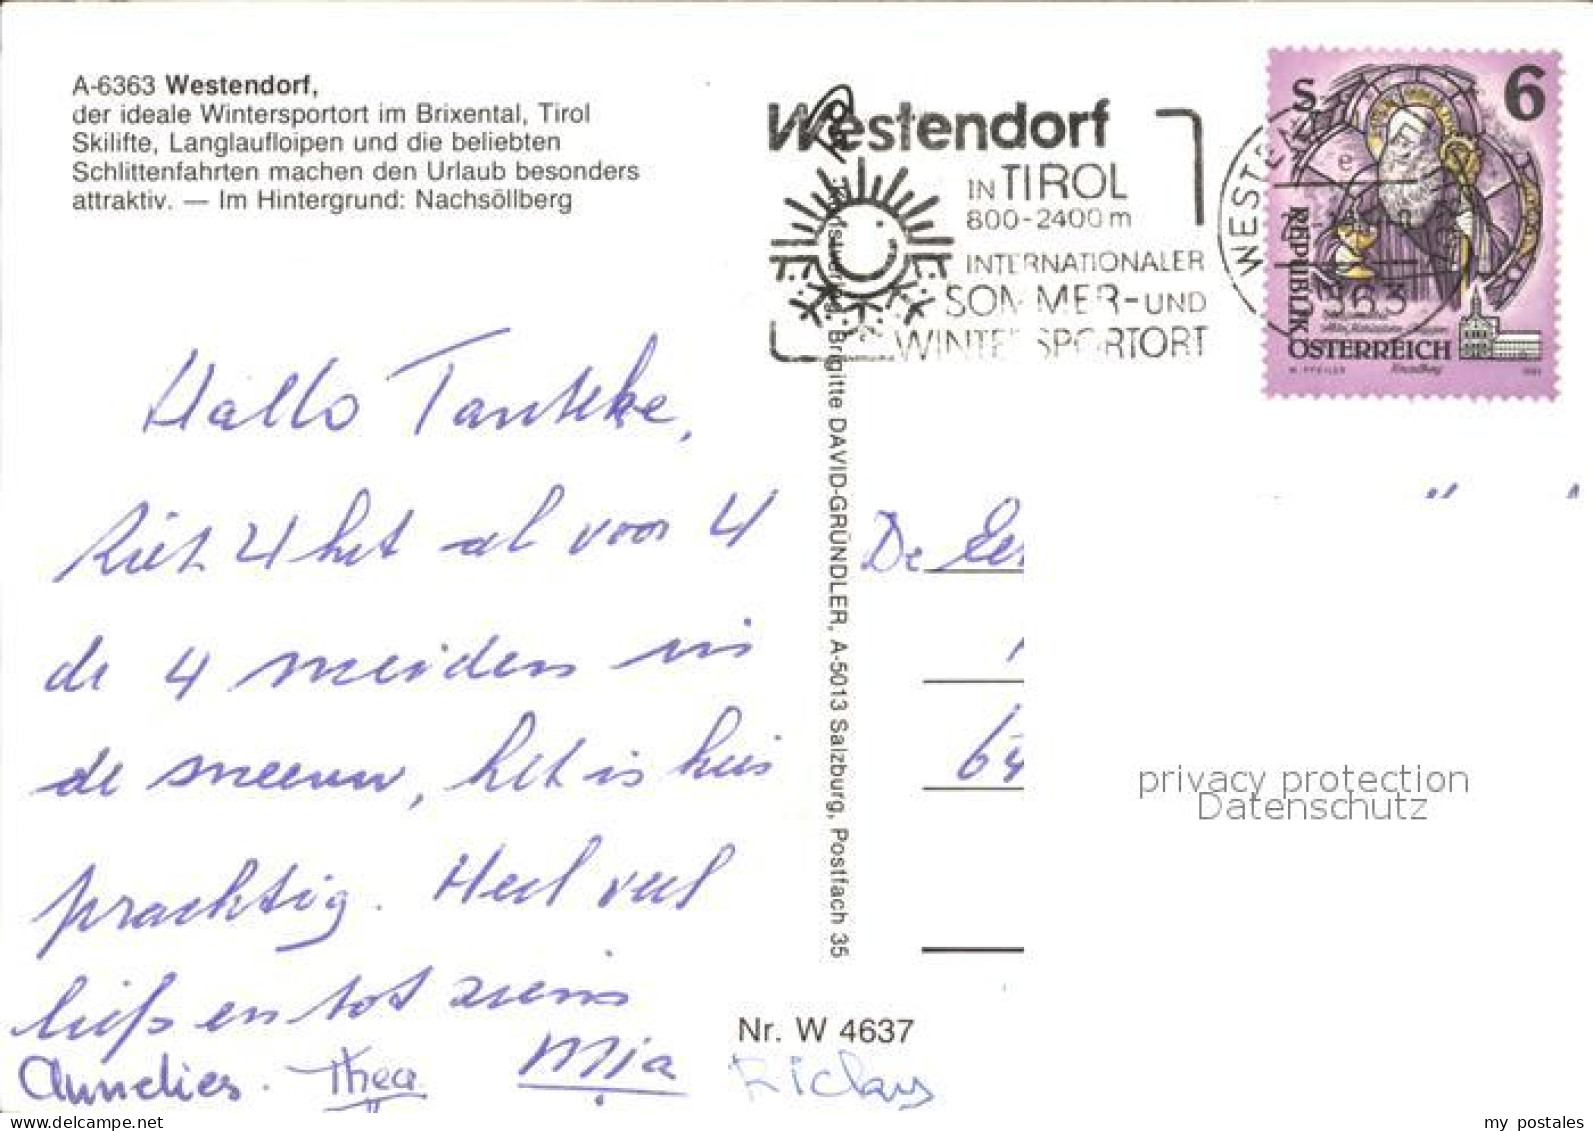 A-6363 Westendorf,
der ideale Wintersportort im Brixental, Tirol
Skilifte, Langlaufloipen und die beliebten
Schlittenfahrten machen den Urlaub besonders
attraktiv. — Im Hintergrund: Nachsöllberg
Westendorf
IN TIROL
800-2400 m
INTERNATIONALER
SOMMER-UND
WINTERSPORTORT
S 6
REPUBLIK
ÖSTERREICH
W. PFEILER
Hallo Tanteke,
Ziet U het al voor U
de 4 meiden in
de sneeuw, het is hier
prachtig. Heel veel
liefs en tot ziens
Annelies. Thea Mia Ricky
Brigitte DAVID-GRÜNDLER, A-5013 Salzburg, Postfach 35
De
64
privacy protection
Datenschutz
Nr. W 4637
my postales